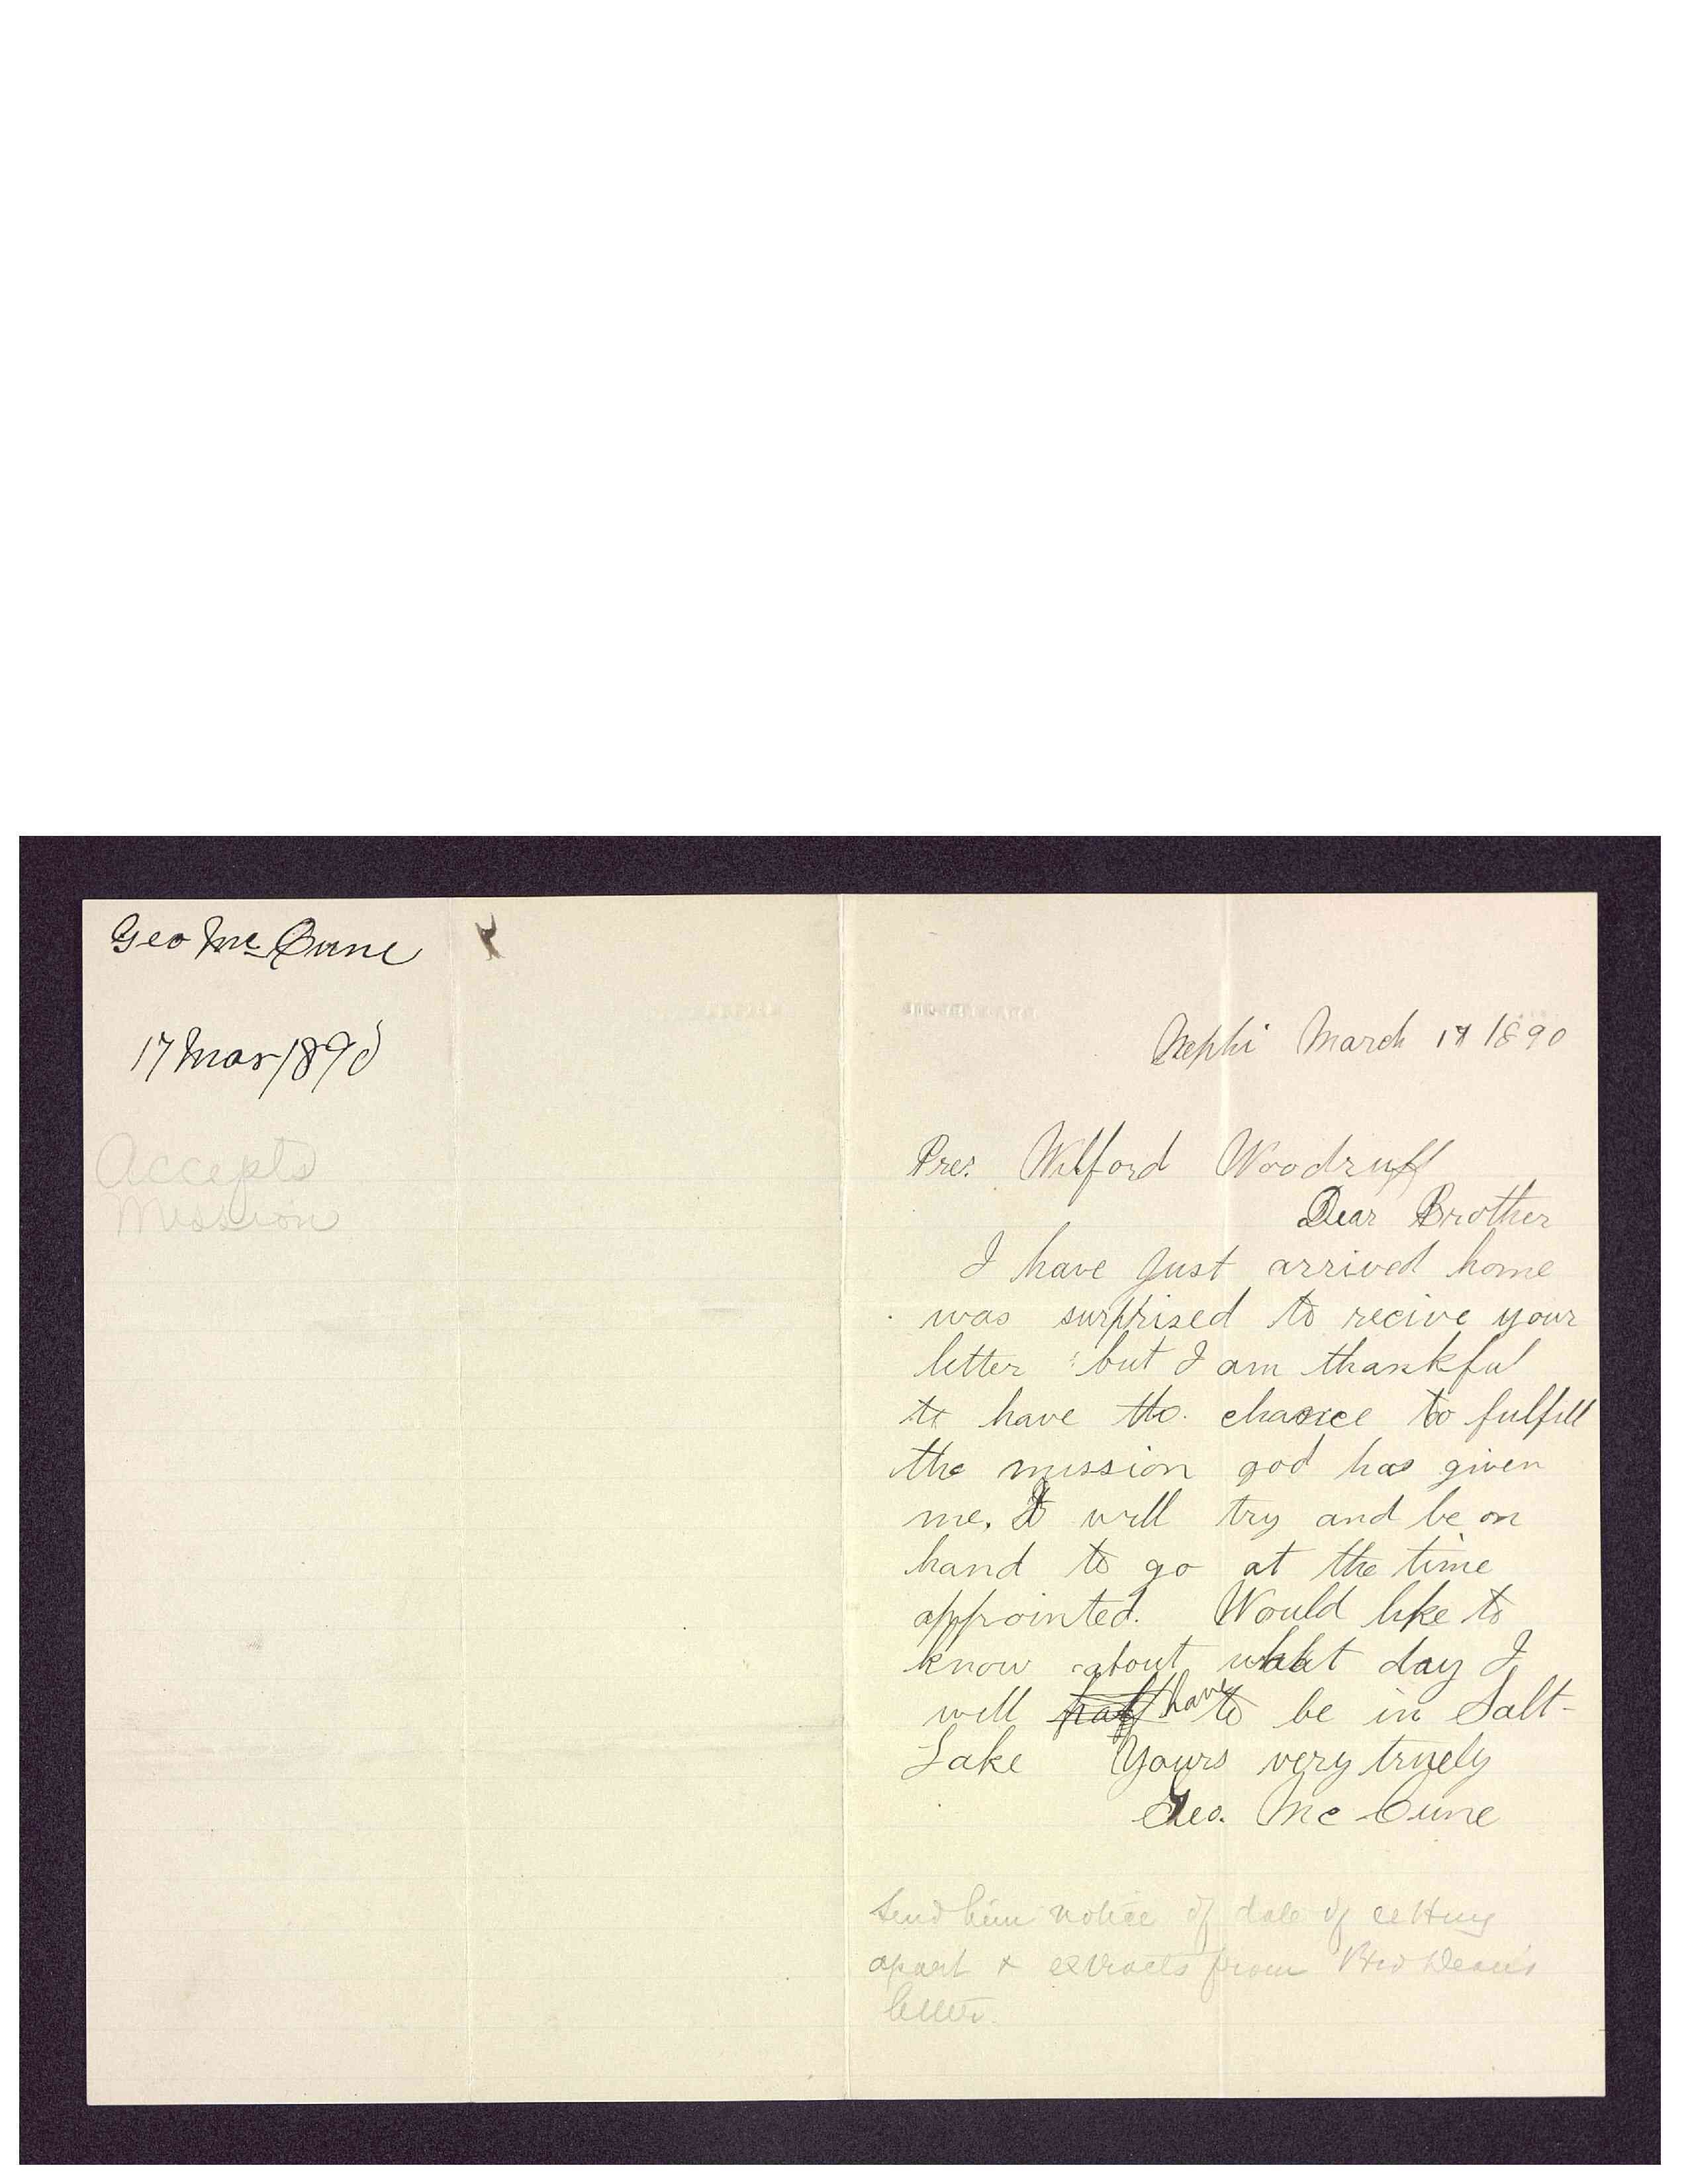 Geo Mc Cune
17 Mar 1890
Accepts
Mission
Nephi March 17 1890
Pres. Wilford Woodruff
Dear Brother
I have just arrived home
was surprised to recive your
letter but I am thankful
to have the chance to fulfill
the mission god has given
me. I will try and be on
hand to go at the time
appointed. Would like to
know about what day I
will half have to be in Salt-
Lake Yours very truely
Geo. Mc Cune
Send him notice of date of setting
apart & extracts from Bro Dean's
letter.